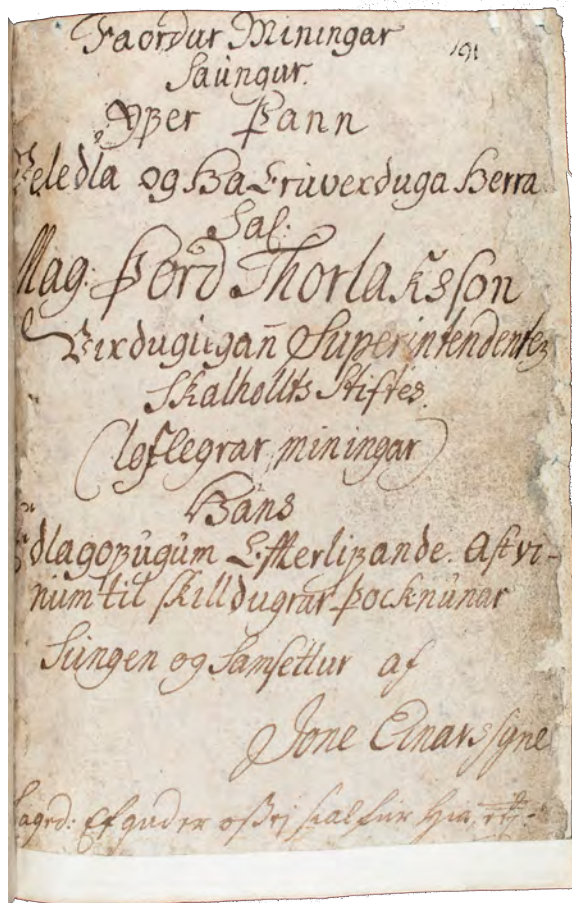 Faordur Miningar
191
Saungur.
Yfer Þann
Veledla og Ha Eruverduga Herra
Sal:
Mag: Þord Thorlaksson
Virdugligan̄ Superintendentez
Skalhollts Stiftes.
(loflegrar miningar)
Hans
Edlagofugum Efterlifande Astvi-
num til skilldugrar þocknunar
Sungen og Samsettur af
Jone Einarssyne
Laged: Ef gud er oss ej sialfur hia, etc.